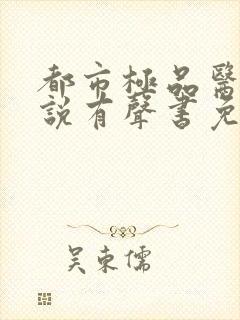 都市極品醫
說有聲書免
吴東儒